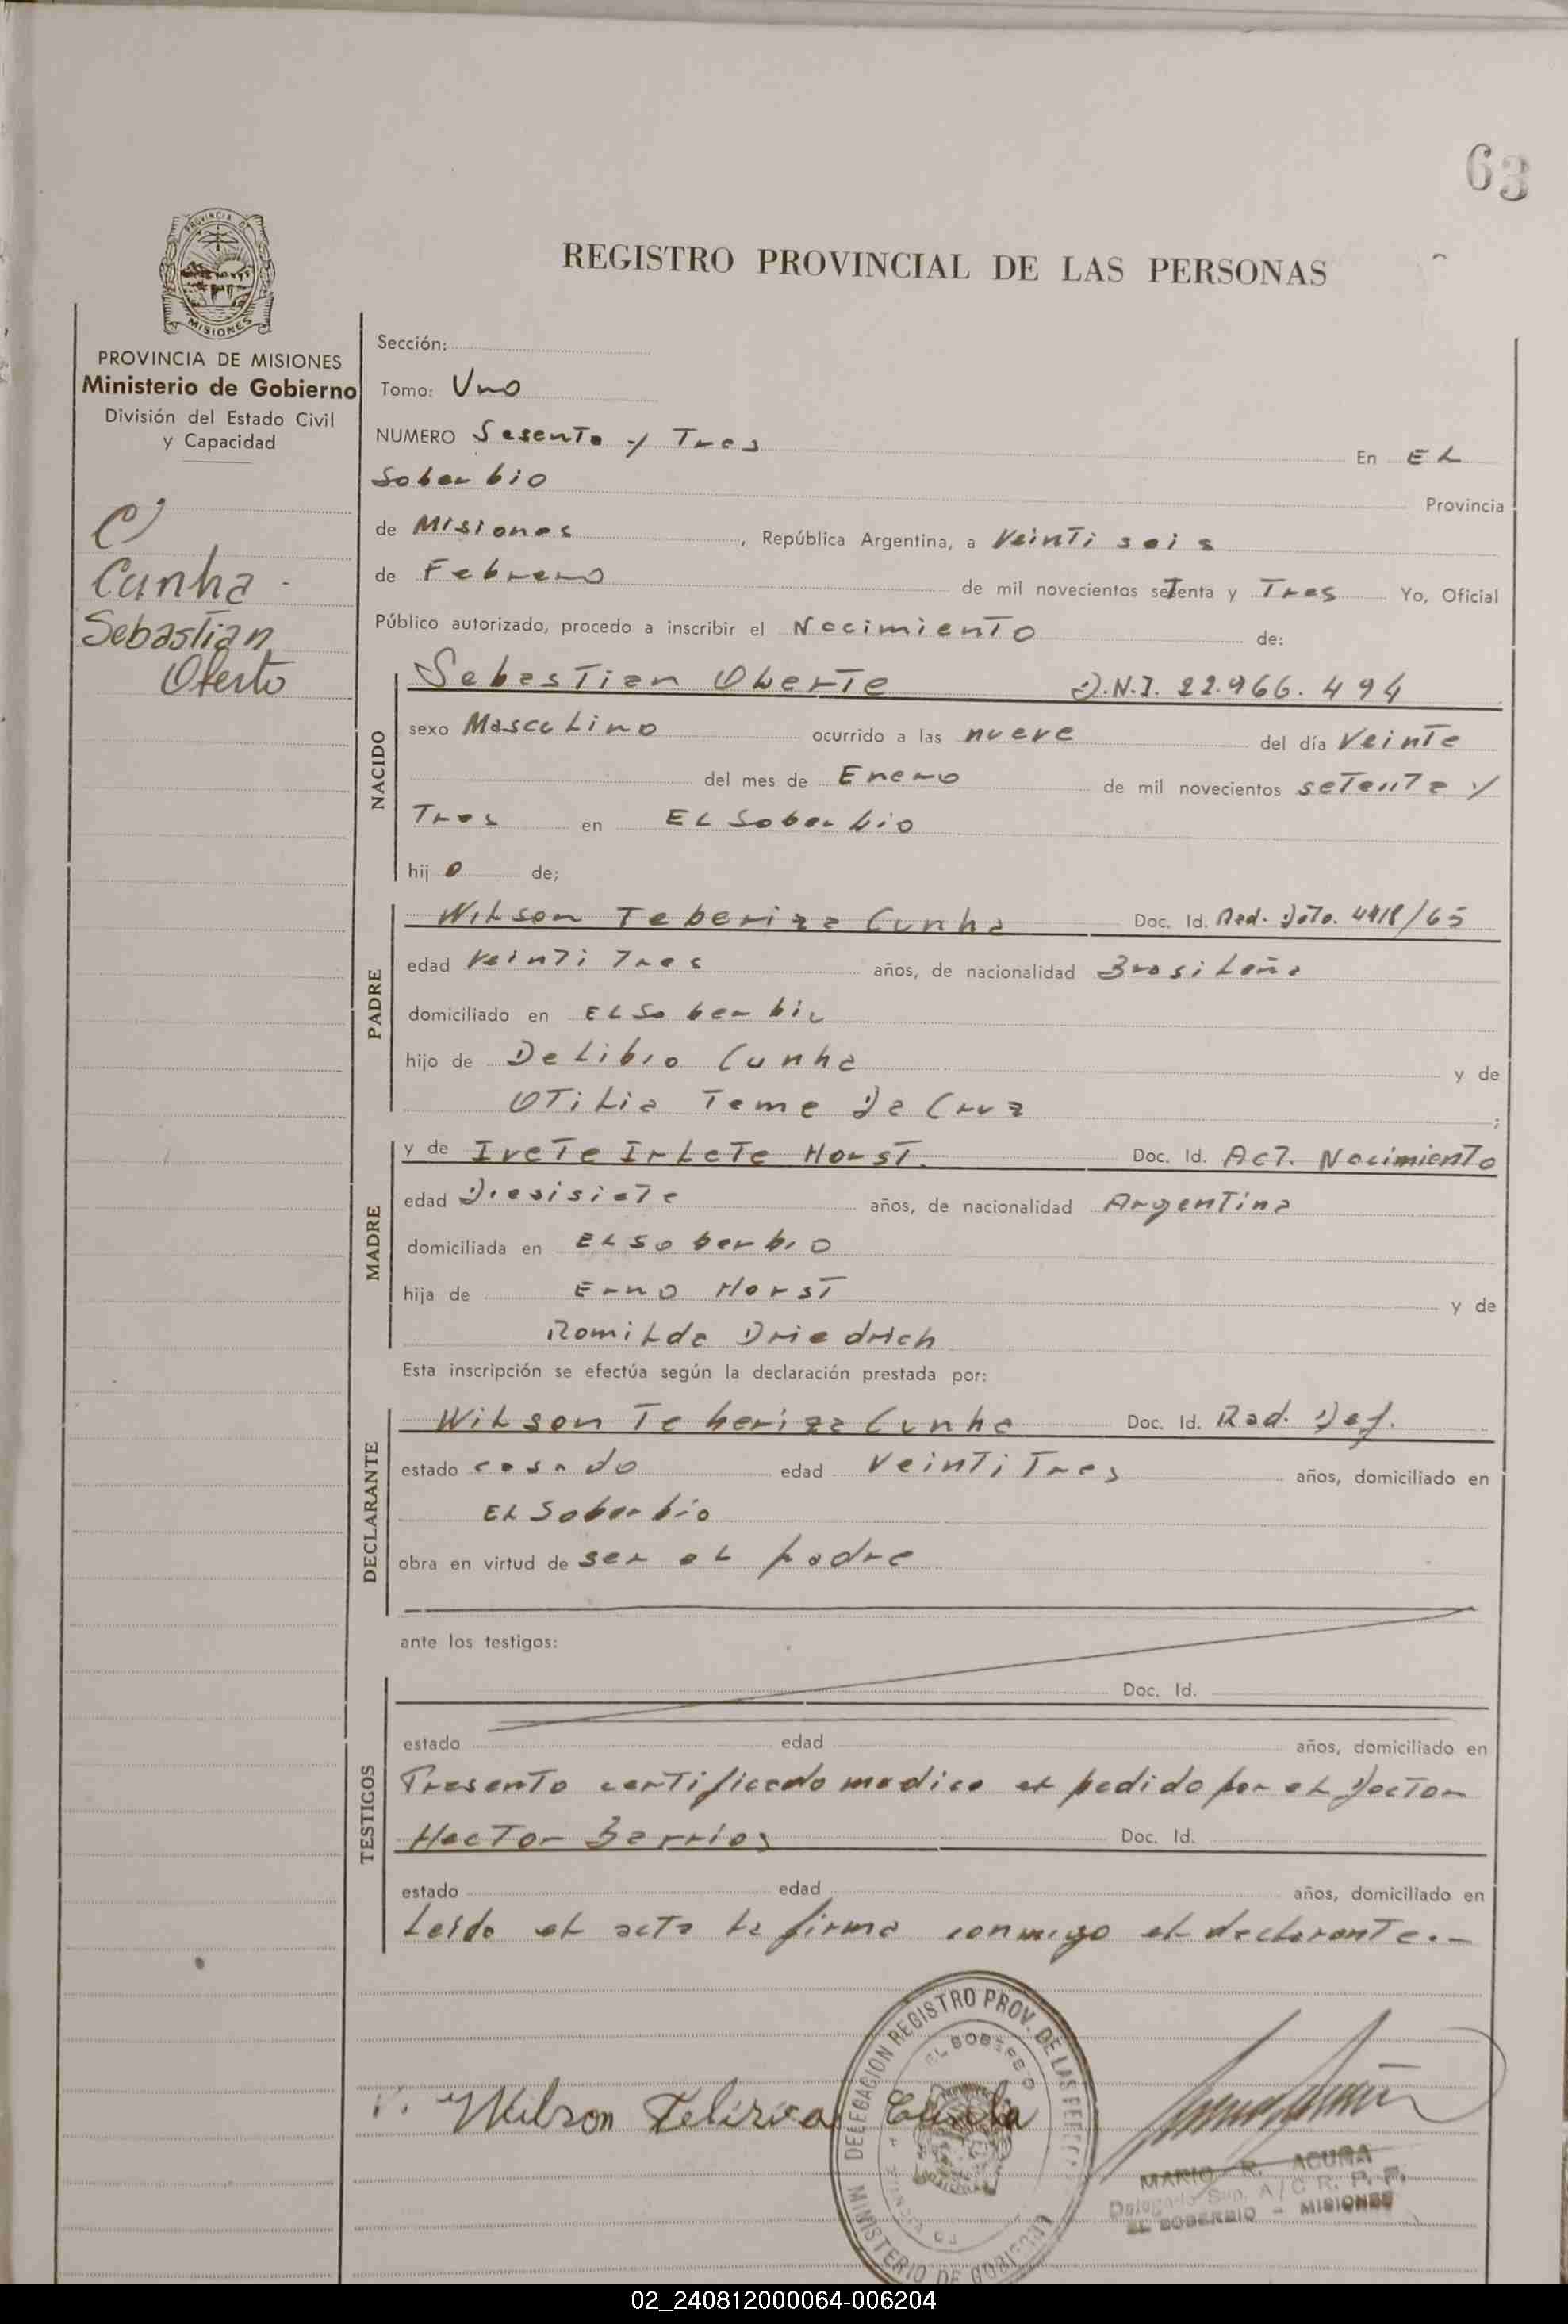 63
PROVINCIA DE
MISIONES
REGISTRO PROVINCIAL DE LAS PERSONAS
PROVINCIA DE MISIONES
Ministerio de Gobierno
División del Estado Civil
y Capacidad
C)
Cunha -
Sebastian
Oberto
Sección:
Tomo: Uno
NUMERO Sesenta y Tres En EL
Soberbio Provincia
de Misiones, República Argentina, a Veinti seis
de Febrero de mil novecientos seTenta y Tres Yo, Oficial
Público autorizado, procedo a inscribir el Nacimiento de:
NACIDO
Sebastian Oberte D.N.I. 22.966.494
sexo Masculino ocurrido a las nueve del día Veinte
del mes de Enero de mil novecientos setenta y
Tres en EL Soberbio
hijo de;
PADRE
Wilson Teberiza Cunha Doc. Id. Rad. 4418/65
edad Veinti Tres años, de nacionalidad Brasileña
domiciliado en EL Soberbio
hijo de Delibio Cunha y de
Otilia Teme Da Cruz ;
MADRE
y de Ivete Irlete Horst. Doc. Id. Act. Nacimiento
edad Diesisiete años, de nacionalidad Argentina
domiciliada en EL Soberbio
hija de Erno Horst y de
Romilda Driedrich
Esta inscripción se efectúa según la declaración prestada por:
DECLARANTE
Wilson Teberiza Cunha Doc. Id. Rad. Def.
estado casado edad Veinti Tres años, domiciliado en
EL Soberbio
obra en virtud de ser el padre
ante los testigos:
TESTIGOS
Doc. Id.
estado edad años, domiciliado en
Presento certificado medico expedido por el Doctor
Hector Barrios Doc. Id.
estado edad años, domiciliado en
Leído el acta la firma conmigo el declarante.-
Wilson Teberiza Cunha
DELEGACION REGISTRO PROV. DE LAS
EL SOBERBIO
MINISTERIO DE GOBIERNO
MARIO R. ACUÑA
Delegado Sup. A/C R. P. P.
EL SOBERBIO - MISIONES
02_240812000064-006204